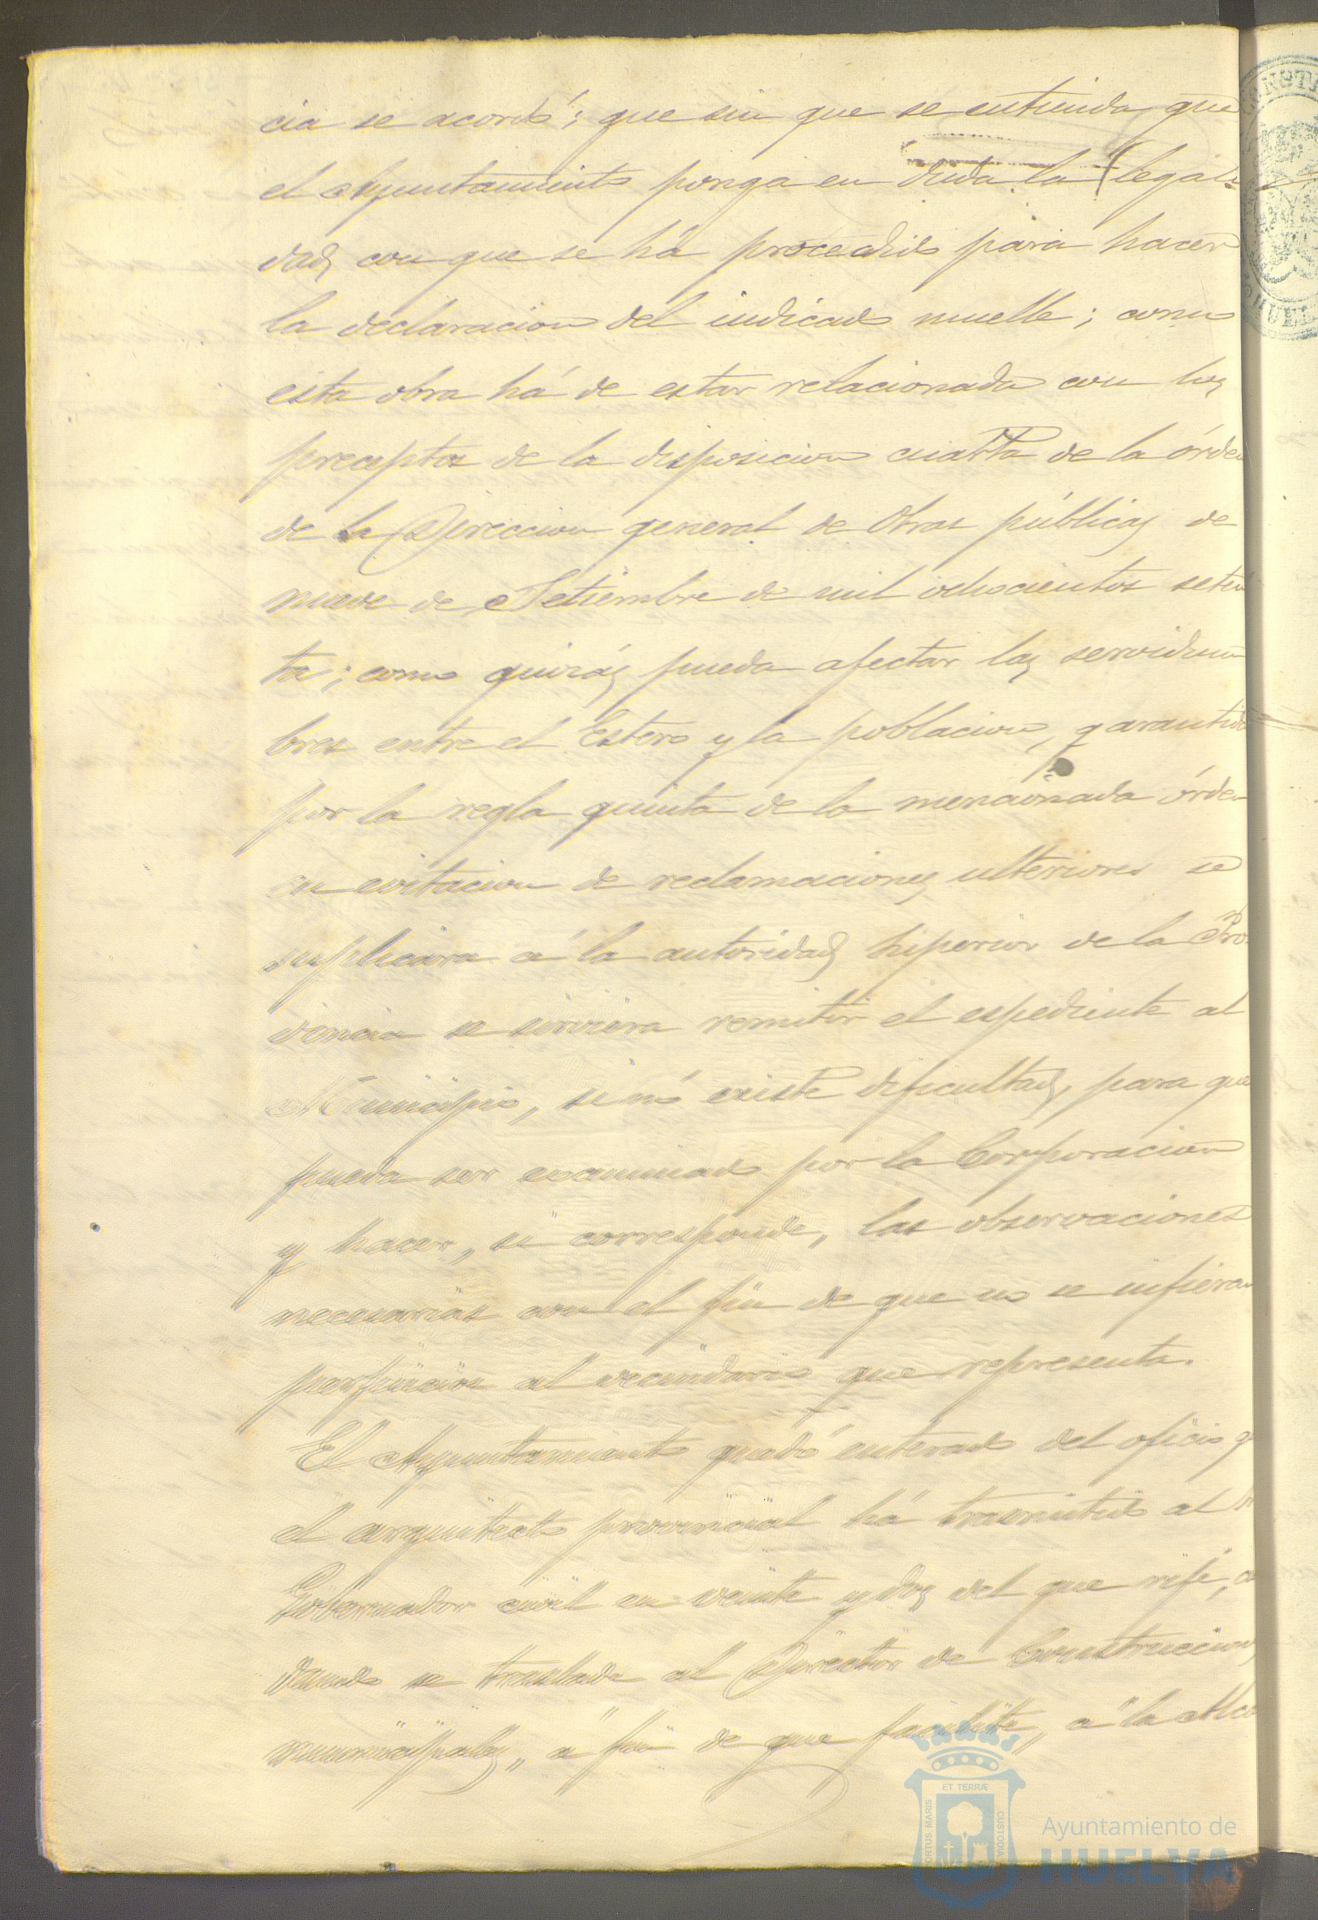 cia se acordó; que sin que se entienda que
el Ayuntamiento ponga en duda la legali
dad con que se há procedido para hacer
la declaracion del indicado muelle; como
esta obra há de estar relacionada con los
preceptos de la disposicion cuarta de la órden
de la Direccion general de Obras públicas de
nueve de Setiembre de mil ochocientos seten
ta; como quizás pueda afectar las servidum
bres entre el Estero y la poblacion, garantida
por la regla quinta de la mencionada órden
en evitacion de reclamaciones ulteriores se
suplicara á la autoridad superior de la Pro
vincia se sirviera remitir el espediente al
Municipio, si nó existe dificultad, para que
pueda ser examinado por la Corporacion
y hacer, si corresponde, las observaciones
necesarias con el fin de que no se infieran
perjuicios al vecindario que representa.
El Ayuntamiento quedó enterado del oficio q
el arquitecto provincial há trasmitido al
Gobernador civil en veinte y dos del que rije,
dando se traslade al Director de Construcciones
municipales, á fin de que facilite, á la Alca
ET TERRÆ
PORTUS MARIS
CUSTODIA
Ayuntamiento de
HUELVA